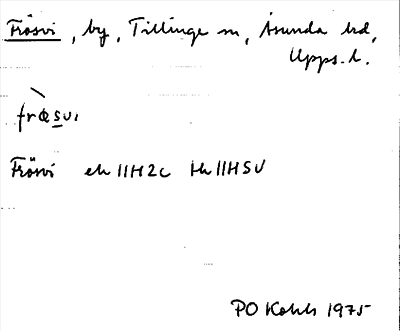 Frösvi, by, Tillinge sn, Åsunda hd,
Upps. l.
frøsvi
Frösvi ek 11H2c tk 11HSV